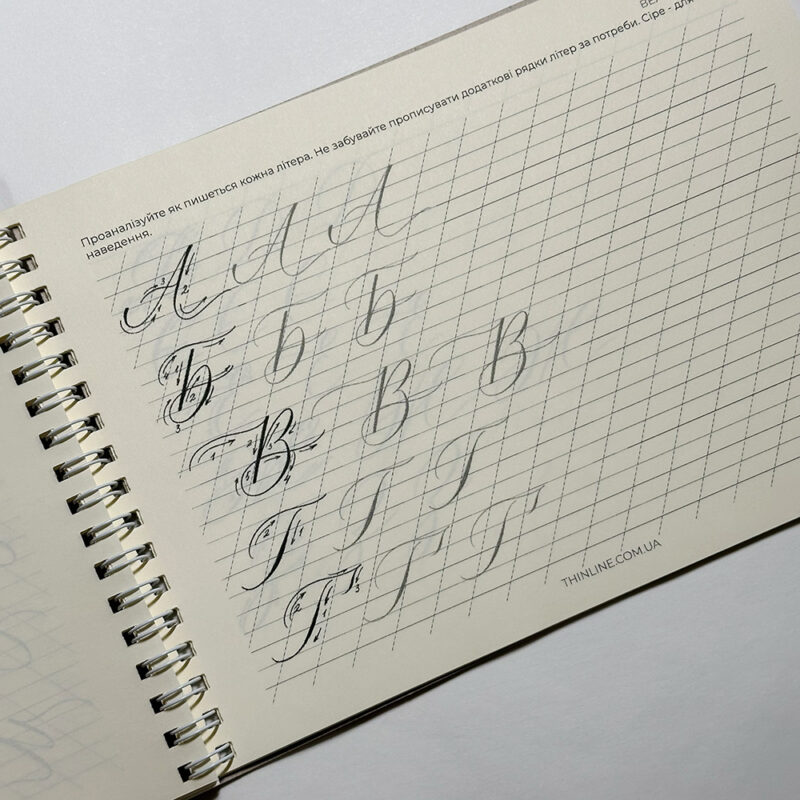 Проаналізуйте як пишеться кожна літера. Не забувайте прописувати додаткові рядки літер за потреби. Сіре - для
наведення.
А А А
Б Б Б
В В В
Г Г Г
Ґ Ґ Ґ
THINLINE.COM.UA